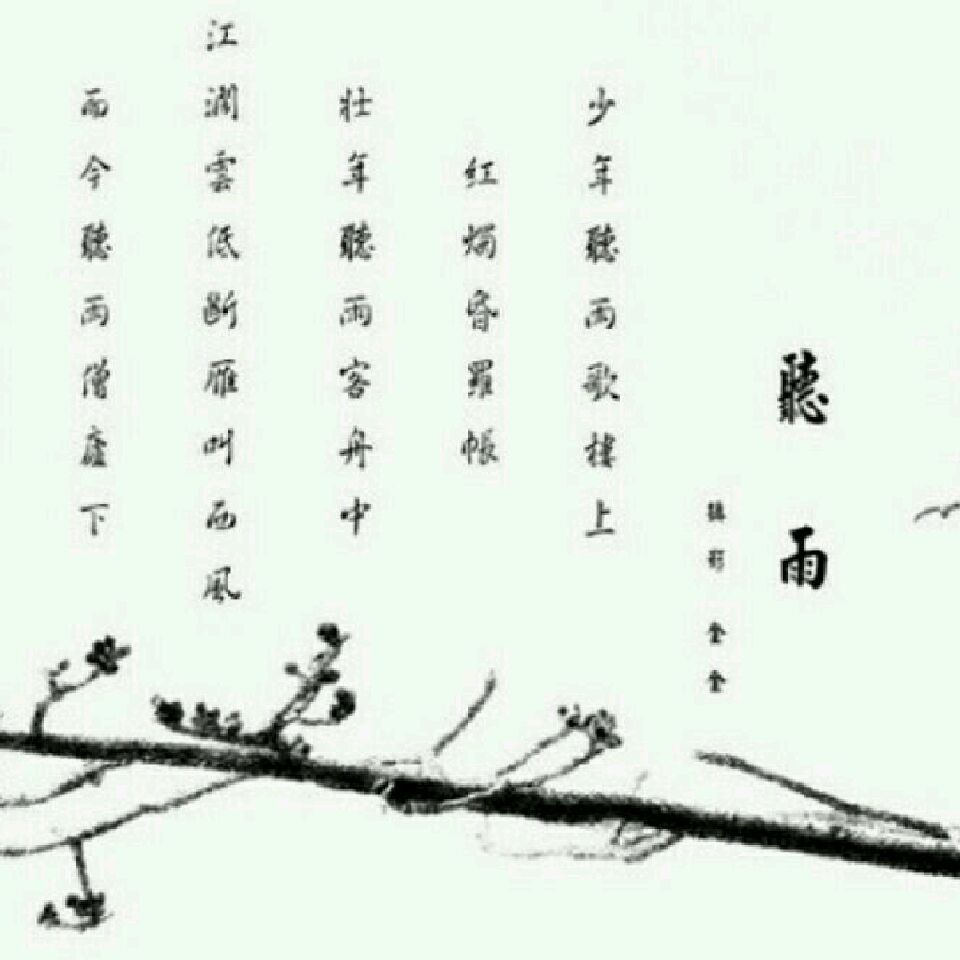 聽雨
攝影 金金
少年聽雨歌樓上
紅燭昏羅帳
壯年聽雨客舟中
江濶雲低斷雁叫西風
而今聽雨僧廬下